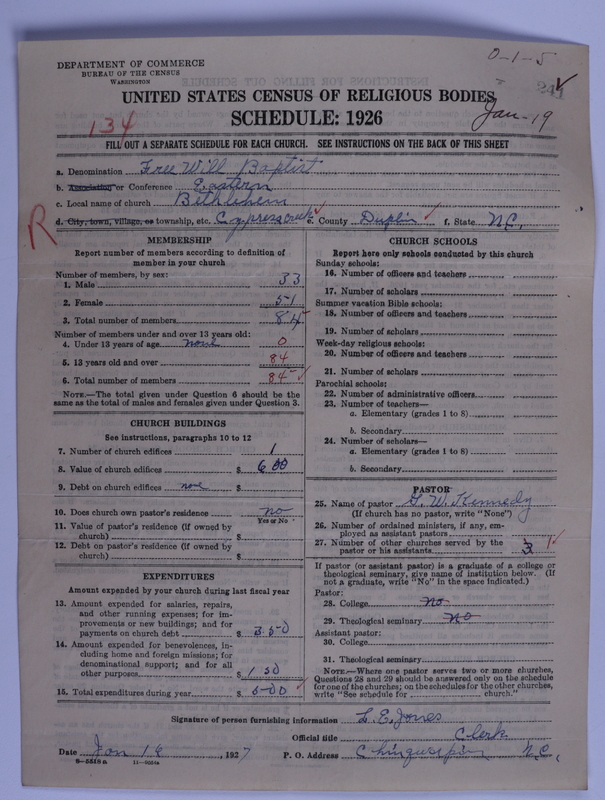 0-1-5
DEPARTMENT OF COMMERCE
BUREAU OF THE CENSUS
WASHINGTON
241
UNITED STATES CENSUS OF RELIGIOUS BODIES
Jan-19
134
SCHEDULE: 1926
FILL OUT A SEPARATE SCHEDULE FOR EACH CHURCH. SEE INSTRUCTIONS ON THE BACK OF THIS SHEET
a. Denomination Free Will Baptist
b. Association or Conference Eastern
c. Local name of church Bethlehem
R
d. City, town, village, or township, etc. Cypress creek e. County Duplin f. State N.C.
MEMBERSHIP
Report number of members according to definition of
member in your church
Number of members, by sex:
1. Male 33
2. Female 51
3. Total number of members 84
Number of members under and over 13 years old:
4. Under 13 years of age none 0
5. 13 years old and over 84
6. Total number of members 84
NOTE.—The total given under Question 6 should be
same as the total of males and females given under Question 3.
CHURCH BUILDINGS
See instructions, paragraphs 10 to 12
7. Number of church edifices 1
8. Value of church edifices $ 600
9. Debt on church edifices none $
10. Does church own pastor's residence no
Yes or No
11. Value of pastor's residence (if owned by
church) $
12. Debt on pastor's residence (if owned by
church) $
EXPENDITURES
Amount expended by your church during last fiscal year
13. Amount expended for salaries, repairs,
and other running expenses; for im-
provements or new buildings; and for
payments on church debt $ 350
14. Amount expended for benevolences, in-
cluding home and foreign missions; for
denominational support; and for all
other purposes $ 150
15. Total expenditures during year $ 500
CHURCH SCHOOLS
Report here only schools conducted by this church
Sunday schools:
16. Number of officers and teachers
17. Number of scholars
Summer vacation Bible schools:
18. Number of officers and teachers
19. Number of scholars
Week-day religious schools:
20. Number of officers and teachers
21. Number of scholars
Parochial schools:
22. Number of administrative officers
23. Number of teachers—
a. Elementary (grades 1 to 8)
b. Secondary
24. Number of scholars—
a. Elementary (grades 1 to 8)
b. Secondary
PASTOR
25. Name of pastor G. W. Kennedy
(If church has no pastor, write "None")
26. Number of ordained ministers, if any, em-
ployed as assistant pastors
27. Number of other churches served by the
pastor or his assistants 3 1
If pastor (or assistant pastor) is a graduate of a college or
theological seminary, give name of institution below. (If
not a graduate, write "No" in the space indicated.)
Pastor:
28. College no
29. Theological seminary no
Assistant pastor:
30. College
31. Theological seminary
NOTE.—Where one pastor serves two or more churches,
Questions 28 and 29 should be answered only on the schedule
for one of the churches; on the schedules for the other churches,
write "See schedule for church."
Signature of person furnishing information L. E. Jones
Official title Clerk
Date Jan 16, 1927 P. O. Address Chinquapin N.C.
8-5518a 11-9024a